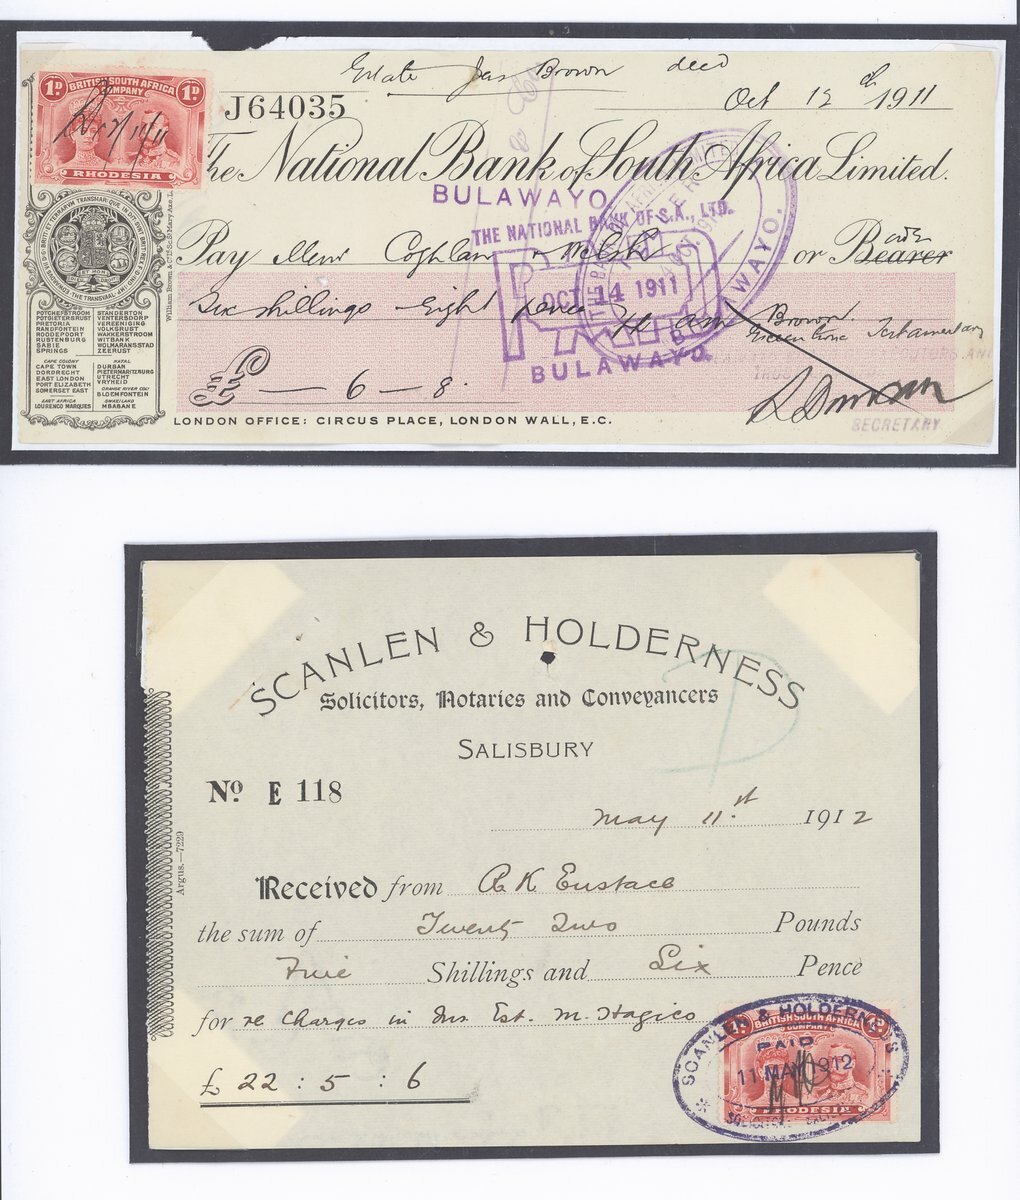 Estate Jas Brown decd
J64035
Oct 12th 1911
1D BRITISH SOUTH AFRICA COMPANY 1D
RHODESIA
The National Bank of South Africa Limited.
BULAWAYO.
THE NATIONAL BANK OF S.A., LTD.
PAID
OCT 14 1911
BULAWAYO.
Pay Messrs Coghlan & Welsh or Bearer order
Six shillings Eight pence
Brown
Executrix Testamentary
£ — 6 — 8.
SECRETARY
LONDON OFFICE: CIRCUS PLACE, LONDON WALL, E.C.
POTCHEFSTROOM STANDERTON
POTGIETERSRUST VENTERSDORP
PRETORIA VEREENIGING
RANDFONTEIN VOLKSRUST
ROODEPOORT WONDERSTROOM
RUSTENBURG WITBANK
SABIE WOLMARANSSTAD
SPRINGS ZEERUST
CAPE COLONY NATAL
CAPE TOWN DURBAN
DORDRECHT PIETERMARITZBURG
EAST LONDON UTRECHT
PORT ELIZABETH VRYHEID
SOMERSET EAST ORANGE RIVER COLY
BLOEMFONTEIN
EAST AFRICA SWAZILAND
LOURENCO MARQUES MBABANE
SCANLEN & HOLDERNESS
Solicitors, Notaries and Conveyancers
SALISBURY
No. E 118
May 11.st 1912
Argus.—7229
Received from A K Eustace
the sum of Twenty Two Pounds
Five Shillings and Six Pence
for re Charges in Ins. Est. M. Hagico
£ 22 : 5 : 6
SCANLEN & HOLDERNESS
PAID
11 MAY 1912
BRITISH SOUTH AFRICA COMPANY
RHODESIA